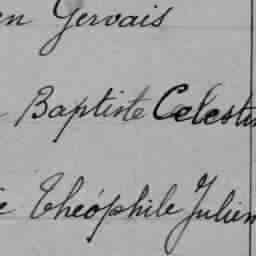 en Gervais
Baptiste Celestin
Théophile Julien